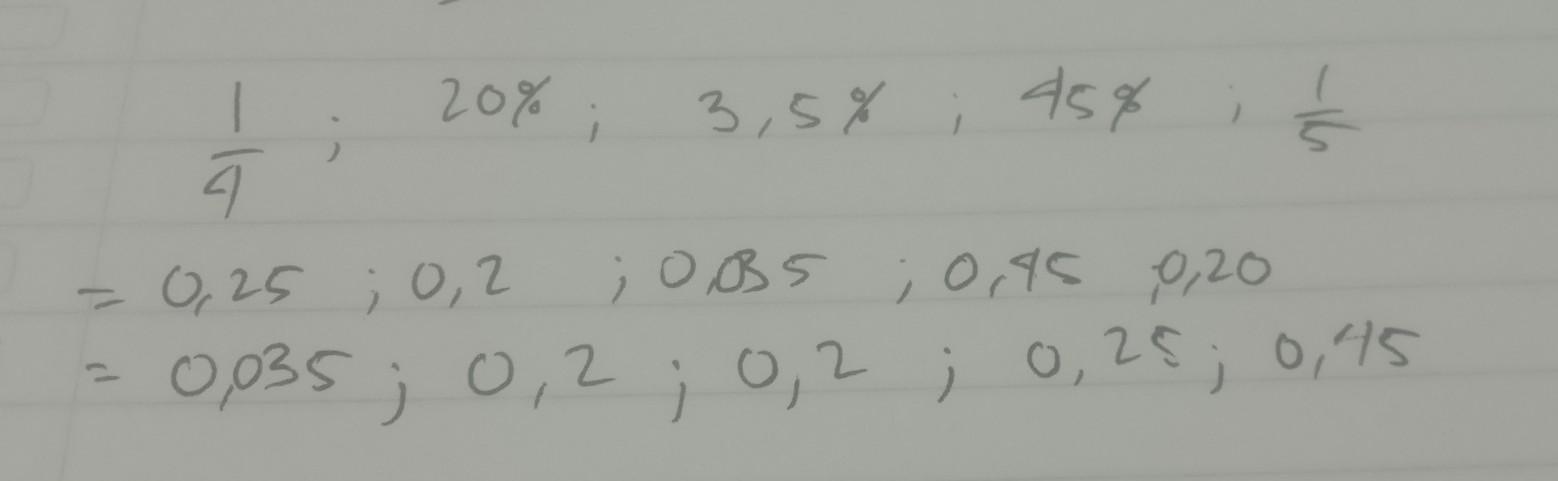 1/4 ; 20% ; 3,5% ; 45% ; 1/5
= 0,25 ; 0,2 ; 0,035 ; 0,45 ; 0,20
= 0,035 ; 0,2 ; 0,2 ; 0,25 ; 0,45